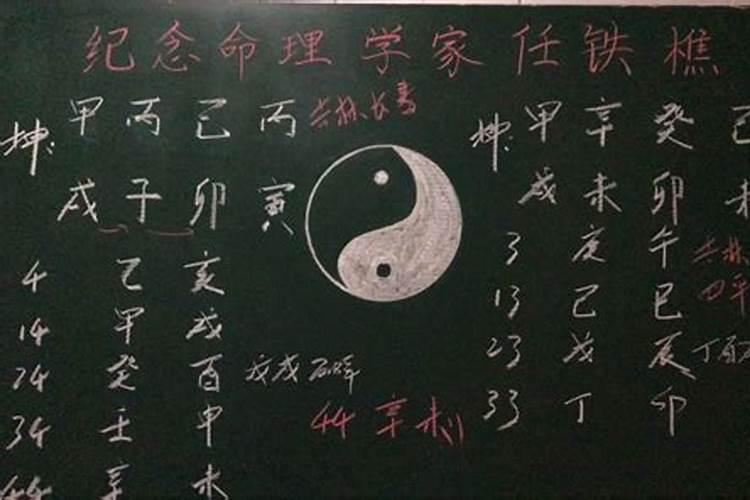 纪念命理学家任铁樵
坤: 甲 丙 己 丙 吉林长春
戌 子 卯 寅
4 乙 亥
14 甲 戌
24 癸 酉
34 壬 申
44 辛 未
戊戌
44 辛未
坤: 甲 辛 癸 己
戌 未 卯 未
3 庚 午 吉林
13 己 巳 四平
23 戊 辰
33 丁 卯